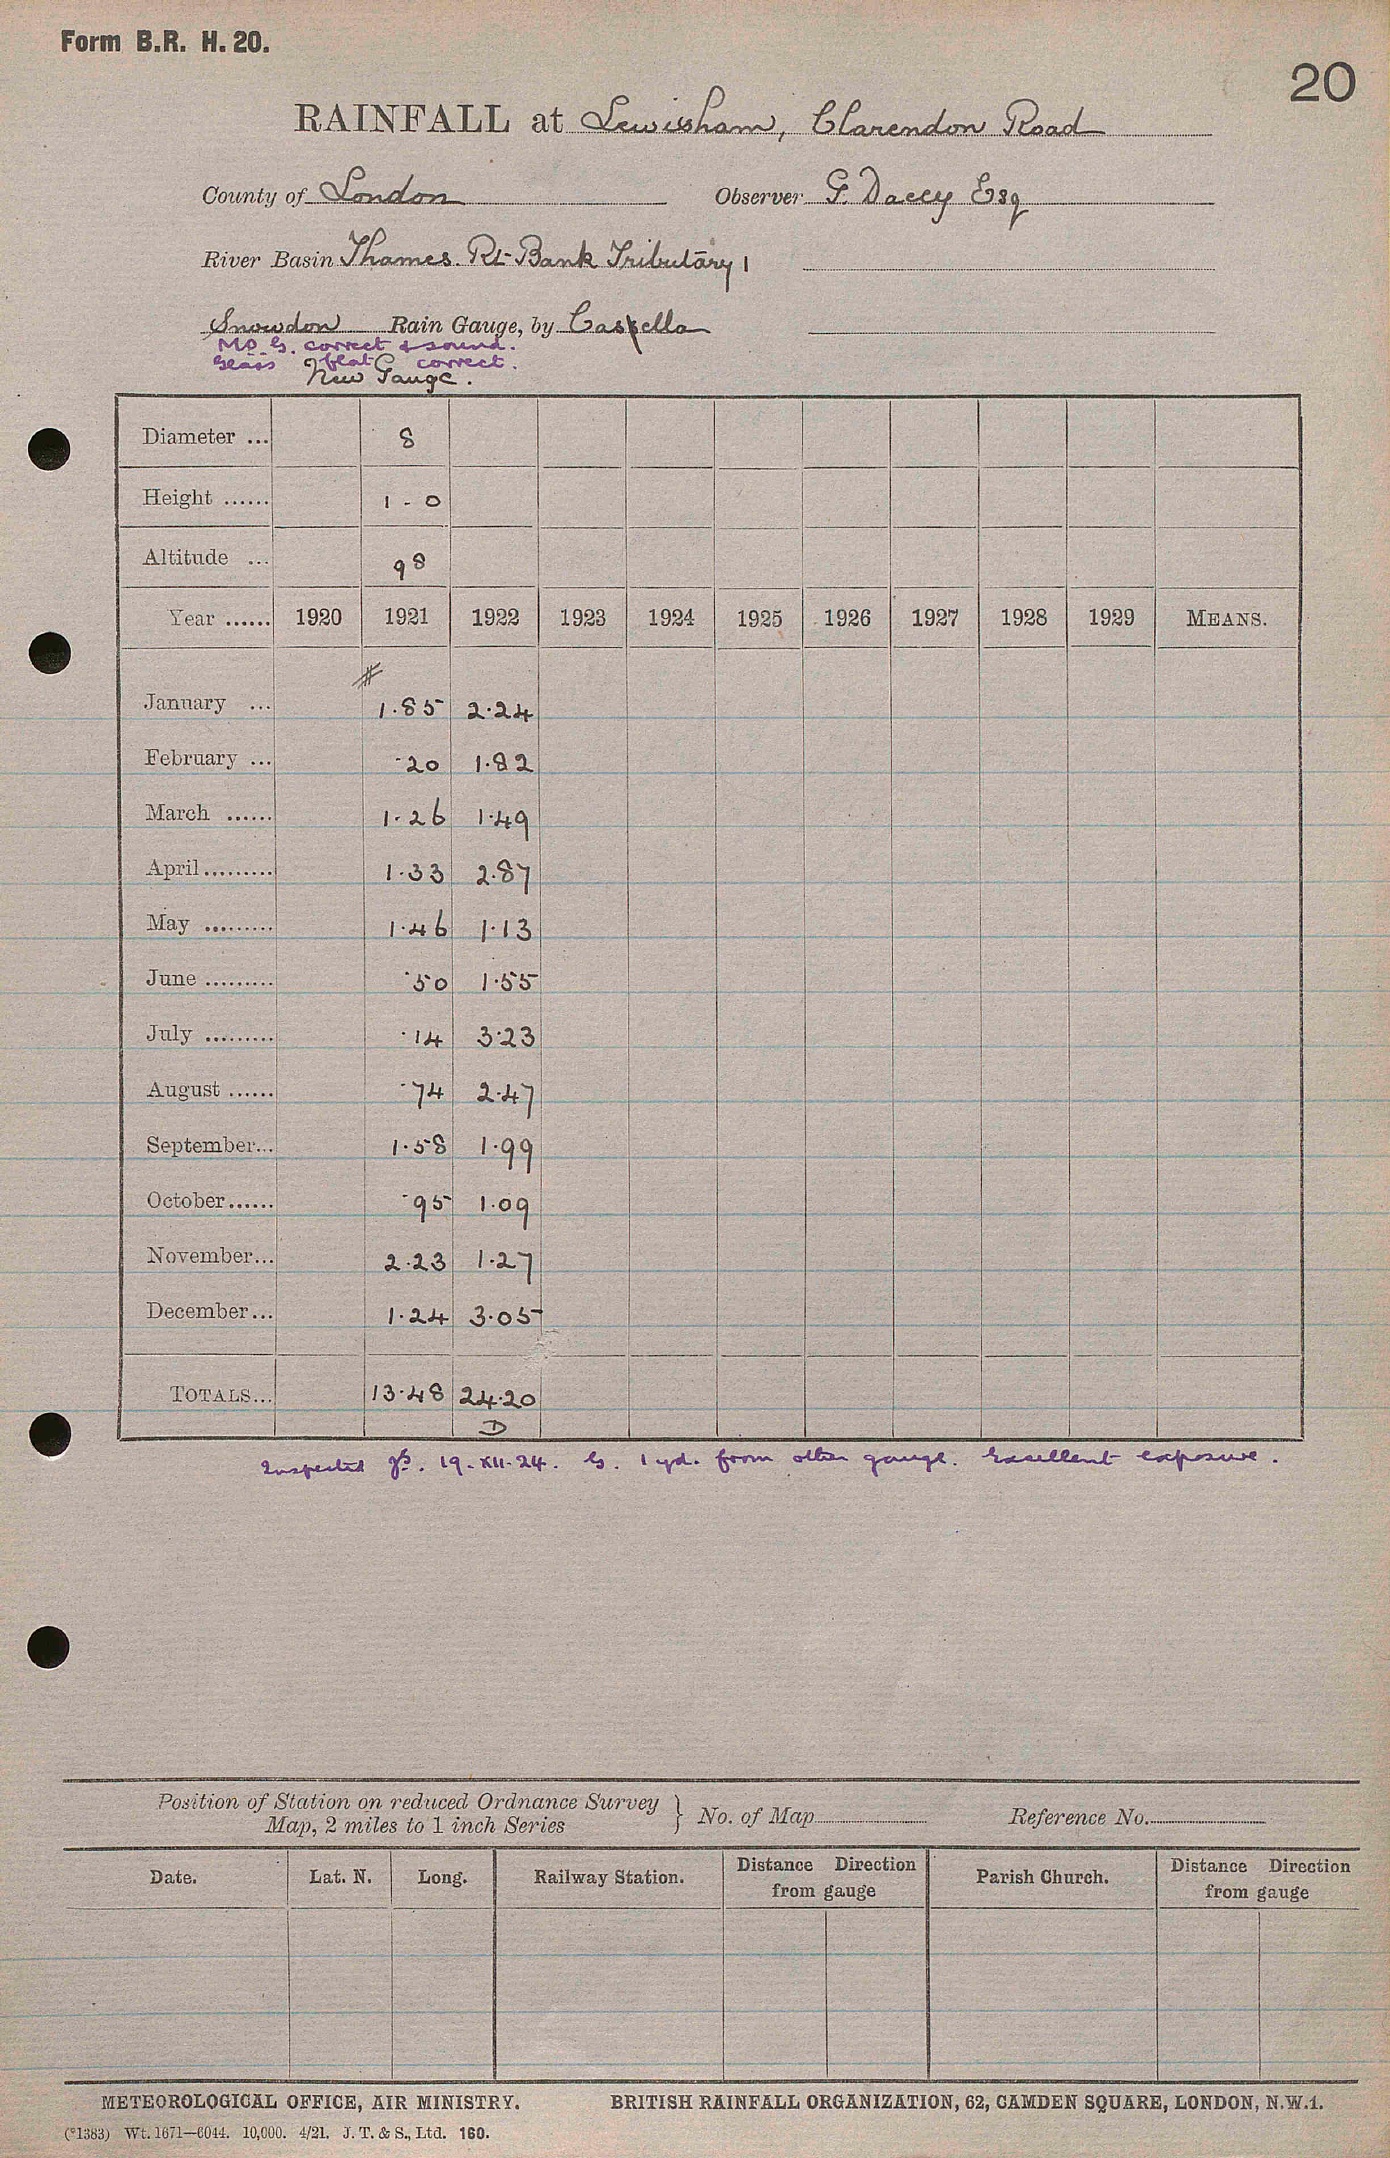 Form B.R. H. 20.
20
RAINFALL at Lewisham, Clarendon Road
County of London Observer G. Dacey Esq
River Basin Thames. Rt Bank Tributary 1
Snowdon Rain Gauge, by Casella
M.O. G. correct & sound.
Glass flat correct.
New Gauge.
Diameter ... 8
Height ...... 1 - 0
Altitude ... 98
Year ...... 1920 1921 1922 1923 1924 1925 1926 1927 1928 1929 MEANS.
#
January ... 1.85 2.24
February ... .20 1.82
March ...... 1.26 1.49
April ......... 1.33 2.87
May ......... 1.46 1.13
June ......... .50 1.55
July ......... .14 3.23
August ...... .74 2.47
September... 1.58 1.99
October...... .95 1.09
November... 2.23 1.27
December... 1.24 3.05
TOTALS... 13.48 24.20
D
Inspected 19.XII.24. G. 1 yd. from other gauge. Excellent exposure.
Position of Station on reduced Ordnance Survey } No. of Map Reference No.
Map, 2 miles to 1 inch Series
Date. Lat. N. Long. Railway Station. Distance Direction from gauge Parish Church. Distance Direction from gauge
METEOROLOGICAL OFFICE, AIR MINISTRY. BRITISH RAINFALL ORGANIZATION, 62, CAMDEN SQUARE, LONDON, N.W.1.
(*1383) Wt. 1671—6044. 10,000. 4/21. J. T. & S., Ltd. 160.